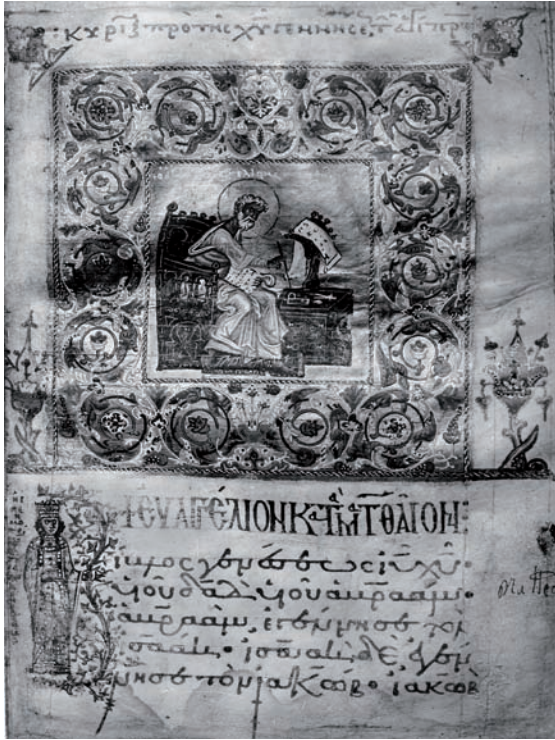 ΚΥΡΙ ΠΡΟ ΤΗΣ ΧΥ ΓΕΝΝΗΣΕ,
+ ΕΥΑΓΓΕΛΙΟΝ ΚΑΤΑ ΜΑΤΘΑΙΟΝ:
ίβλος γενέσεως ιυ χυ·
υιού δαδ υιού αβραάμ·
αβραάμ, εγέννησε τὸν
ισαάκ· ισαὰκ δὲ, εγέν
νησε τὸν ιακώβ· ιακὼβ